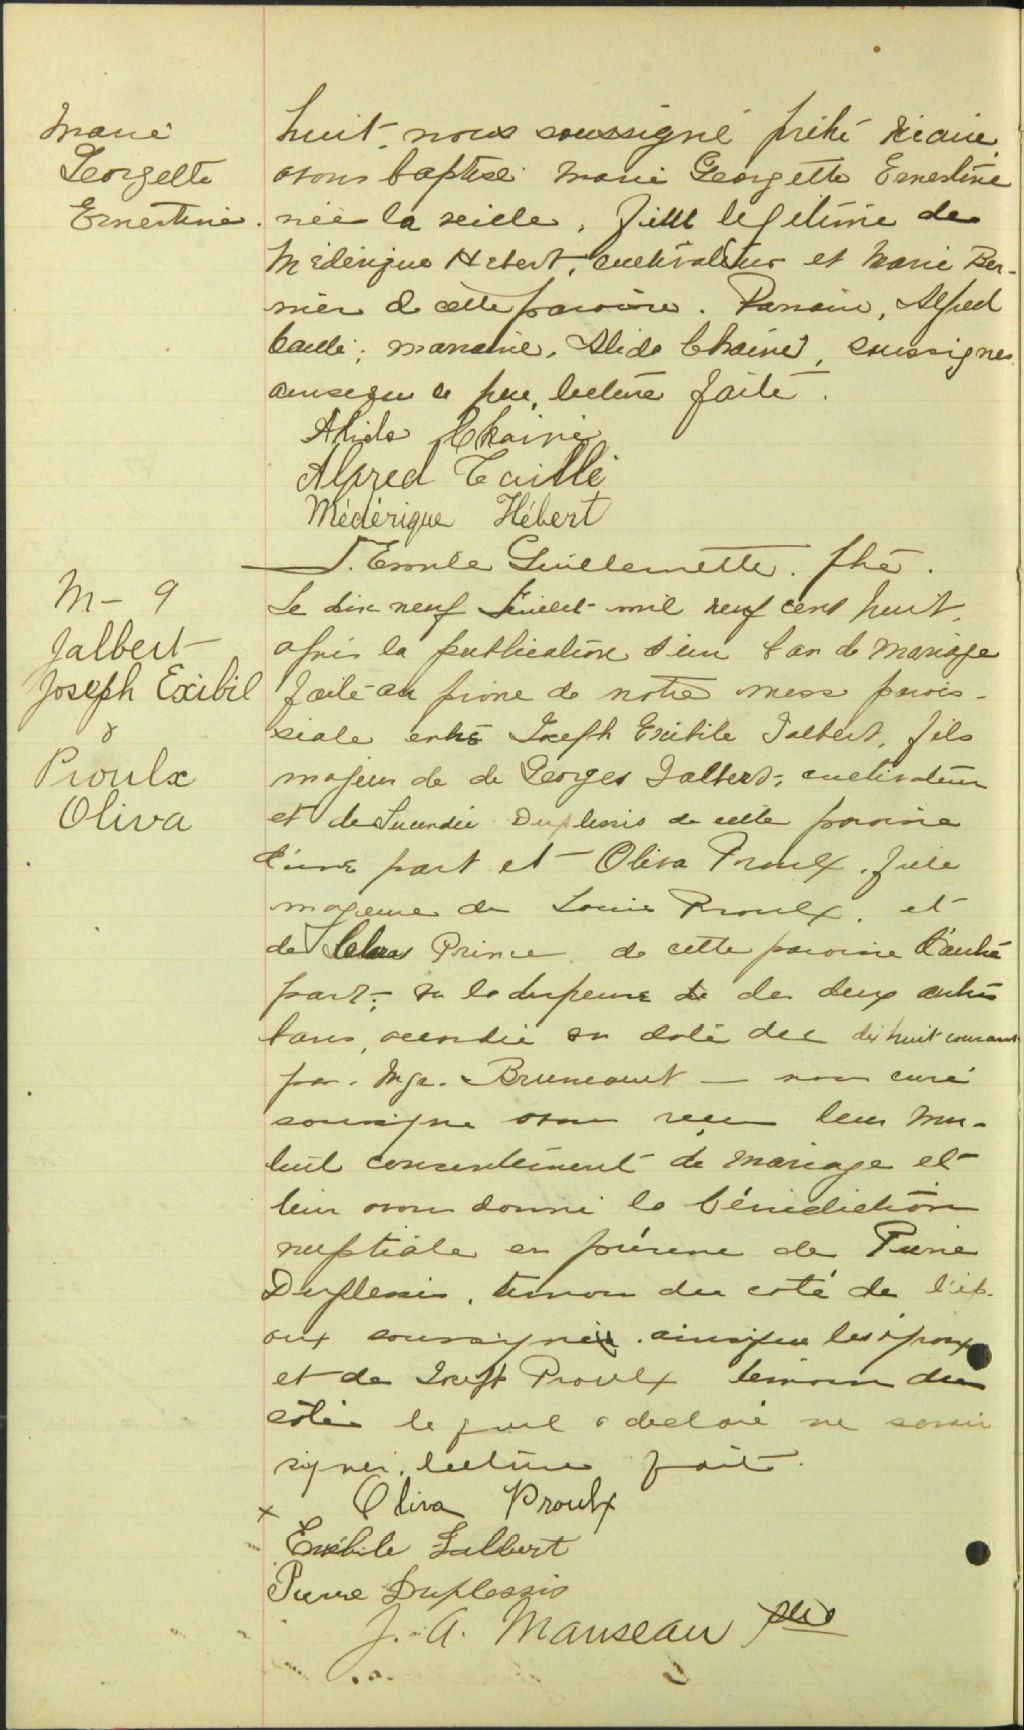 Marie
Georgette
Ernestine.
huit, nous soussigné prêtre vicaire
avons baptisé Marie Georgette Ernestine
née la veille, fille légitime de
Médérique Hébert, cultivateur et Marie Ber-
nier de cette paroisse. Parrain, Alfred
Caillé; marraine, Alida Chainé, soussignés
ainsi que le père, lecture faite.
Alida Chainé
Alfred Caillé
Médérique Hébert
J. Guillemette. ptre.
M - 9
Jalbert
Joseph Exibil
&
Proulx
Oliva
Le dix neuf Juillet mil neuf cent huit,
après la publication d'un ban de mariage
faite au prone de notre messe parois-
siale entre Joseph Exibile Jalbert, fils
majeur de de Georges Jalbert, cultivateur
et de Duplessis de cette paroisse
d'une part et Oliva Proulx, fille
majeure de Louis Proulx, et
de Prince de cette paroisse d'autre
part; vu la dispense de des deux autres
bans, accordée en date du dix huit courant
par Mgr. Brunault — nous curé
soussigné avons reçu leur mu-
tuel consentement de mariage et
leur avons donné la bénédiction
nuptiale en présence de Pierre
Duplessis, témoin du coté de l'ép-
oux soussigné ainsi que les époux
et de Joseph Proulx témoin du
côté le quel a déclaré ne savoir
signer, lecture faite.
x Oliva Proulx
Exibile Jalbert
Pierre Duplessis
J. A. Manseau ptre